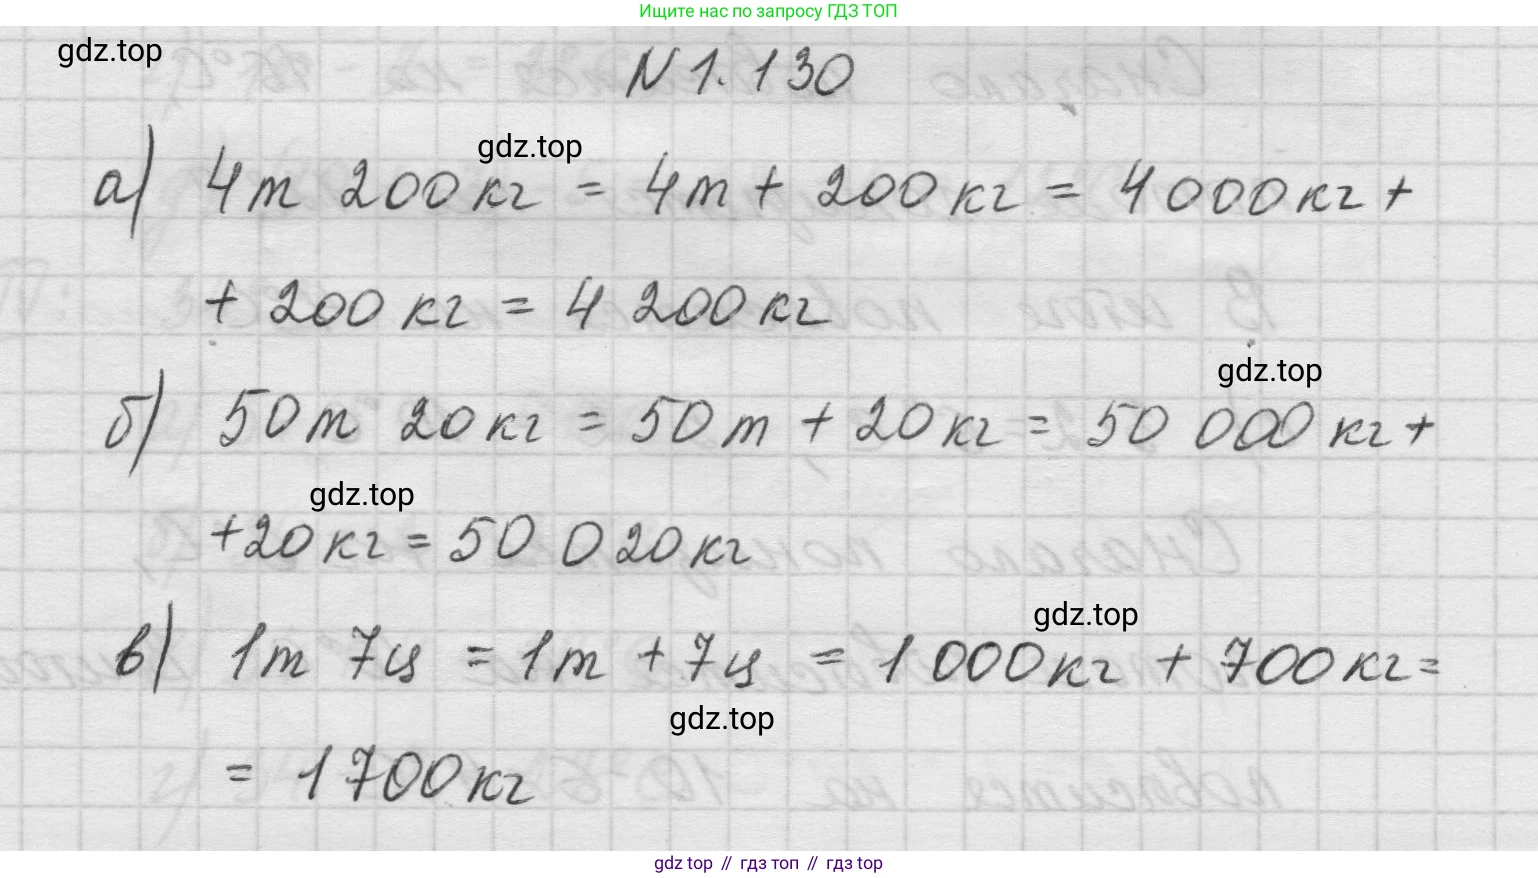 Ищите нас по запросу ГДЗ ТОП
gdz.top
N 1.130
gdz.top
а) 4т 200кг = 4т + 200кг = 4000кг +
+ 200 кг = 4 200 кг
gdz.top
б) 50т 20кг = 50т + 20кг = 50 000 кг +
gdz.top
+20кг = 50 020кг
gdz.top
в) 1т 7ц = 1т + 7ц = 1 000кг + 700кг =
gdz.top
= 1 700кг
gdz top // гдз топ // гдз top